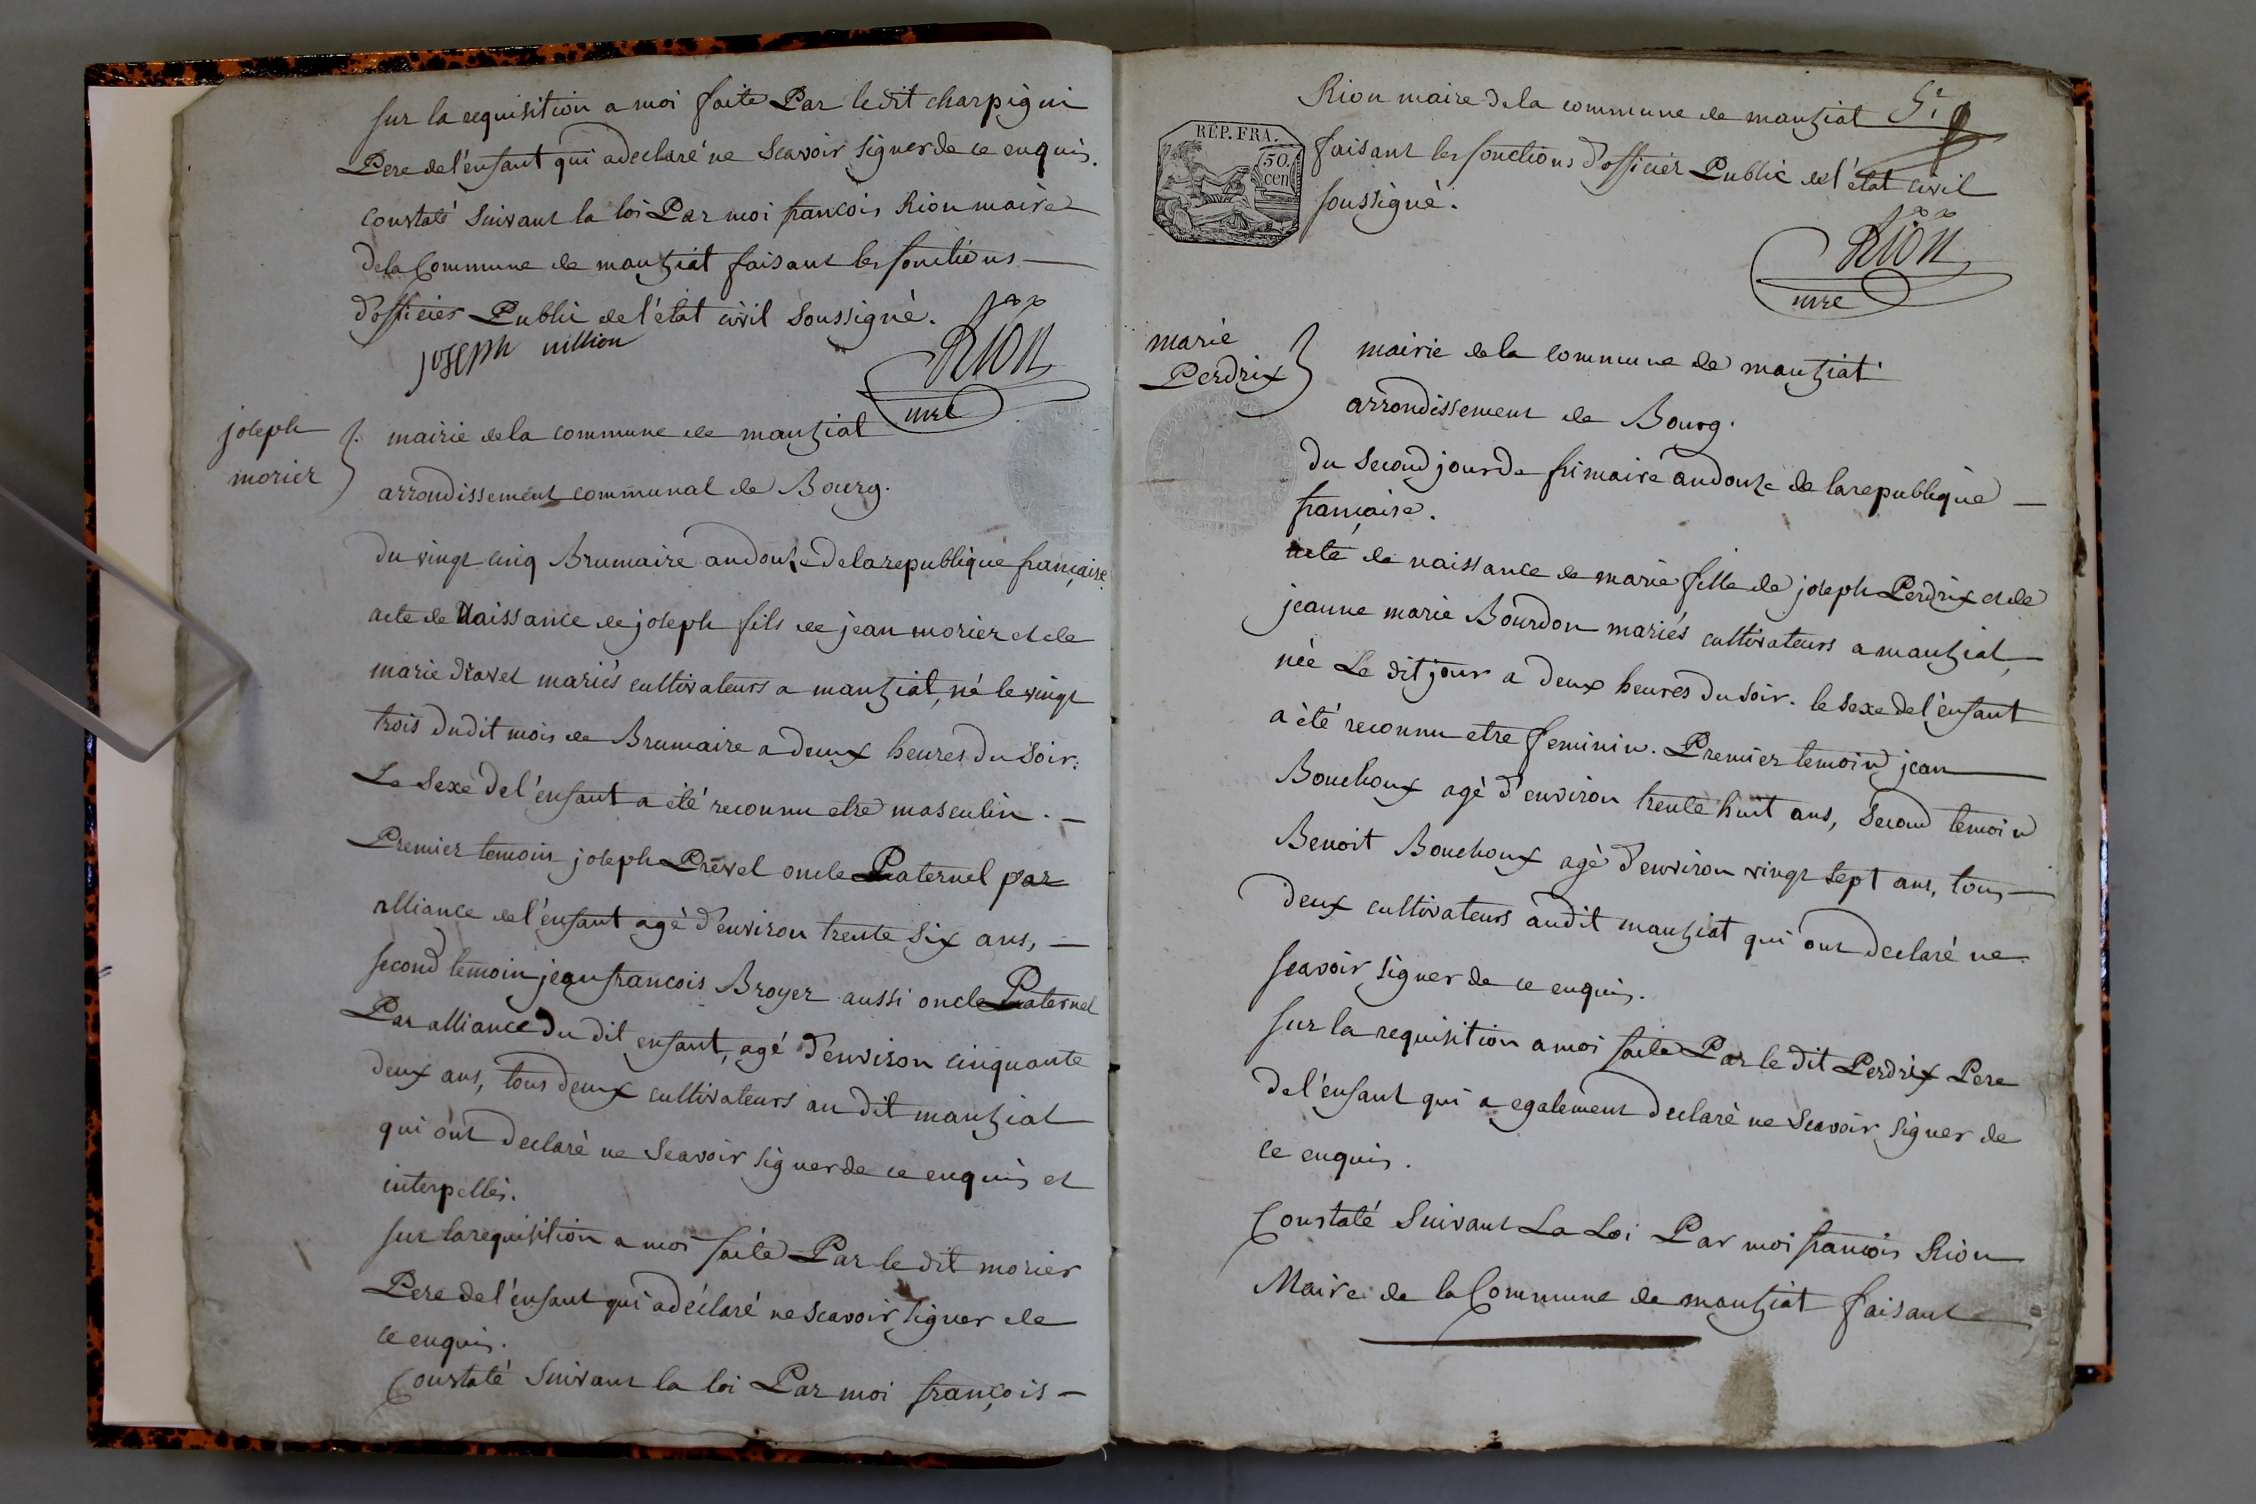 sur la requisition a moi faite Par le dit charpigni
Pere de l'enfant qui a declaré ne Scavoir signer de ce enquis.
constaté suivant la loi Par moi francois Rion maire
de la Commune de mantziat faisant les fonctions
d'officier Public de l'état civil soussigné.
joseph
Rion
mre
joseph
morier
mairie de la commune de mantziat
arrondissement communal de Bourg.
du vingt cinq Brumaire an douze de la republique française
acte de Naissance de joseph fils de jean morier et de
marie mariés cultivateurs a mantziat, né le vingt
trois du dit mois de Brumaire a deux heures du soir.
Le Sexe de l'enfant a été reconnu etre masculin.
Premier temoin joseph Prevel oncle Paternel par
alliance de l'enfant agé d'environ trente six ans,
second temoin jean francois Broyer aussi oncle Paternel
Par alliance du dit enfant, agé d'environ cinquante
deux ans, tous deux cultivateurs au dit mantziat
qui ont declaré ne Scavoir signer de ce enquis et
interpellés.
sur la requisition a moi faite Par le dit morier
Pere de l'enfant qui a déclaré ne scavoir signer de
ce enquis.
Constaté suivant la loi Par moi françois
Rion maire de la commune de mantziat
RÉP. FRA.
50.
cen
faisant les fonctions d'officier Public de l'état civil
soussigné.
Rion
mre
marie
Perdrix
mairie de la commune de mantziat
arrondissement de Bourg.
du second jour de frimaire an douze de la republique
française.
acte de naissance de marie fille de joseph Perdrix et de
jeanne marie Bourdon mariés cultivateurs a mantziat,
née Le dit jour a deux heures du soir. le sexe de l'enfant
a été reconnu etre feminin. Premier temoin jean
Bouchoux agé d'environ trente huit ans, second temoin
Benoit Bouchoux agé d'environ vingt sept ans, tous
deux cultivateurs audit mantziat qui ont declaré ne
scavoir signer de ce enquis.
sur la requisition a moi faite Par le dit Perdrix Pere
de l'enfant qui a egalement declaré ne Scavoir signer de
ce enquis.
Constaté Suivant La Loi Par moi francois Rion
Maire de la Commune de mantziat faisant